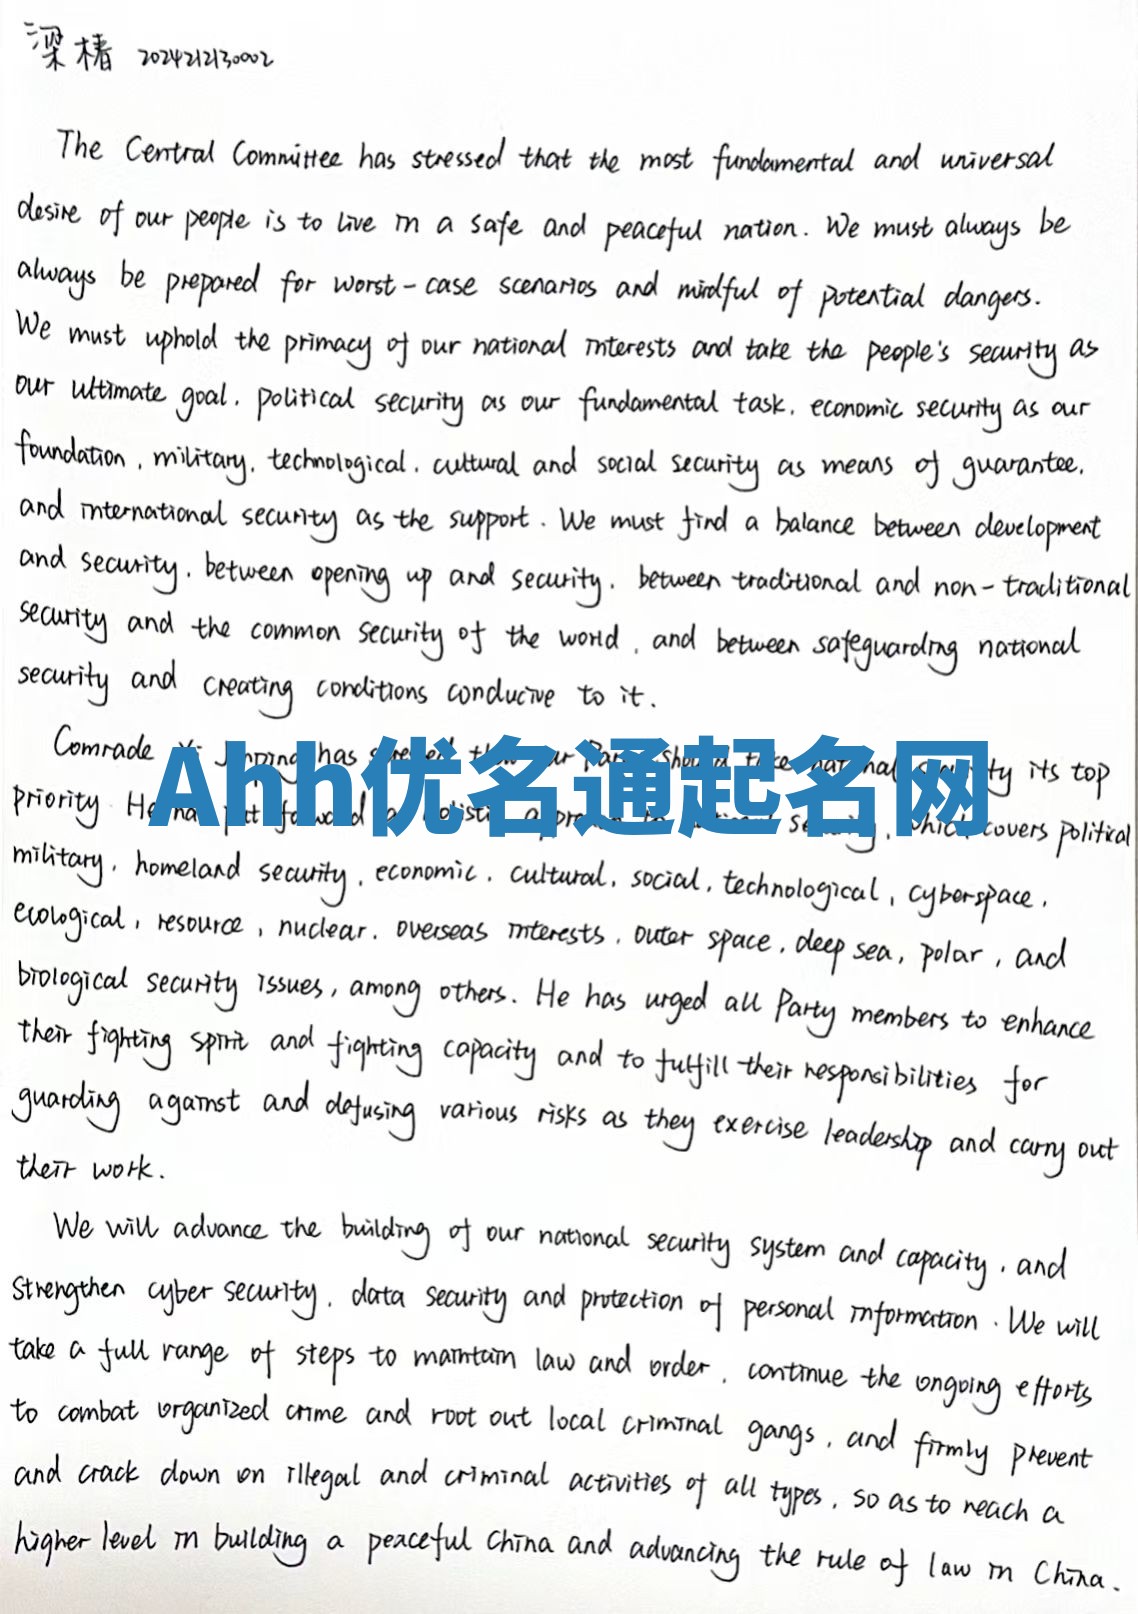 梁椿 2024212130002
The Central Committee has stressed that the most fundamental and universal
desire of our people is to live in a safe and peaceful nation. We must always be
always be prepared for worst-case scenarios and mindful of potential dangers.
We must uphold the primacy of our national interests and take the people's security as
our ultimate goal, political security as our fundamental task, economic security as our
foundation, military, technological, cultural and social security as means of guarantee,
and international security as the support. We must find a balance between development
and security, between opening up and security, between traditional and non-traditional
security and the common security of the world, and between safeguarding national
security and creating conditions conducive to it.
Comrade Jinping has its top
Ahh优名通起名网
priority. He covers political
military, homeland security, economic, cultural, social, technological, cyberspace,
ecological, resource, nuclear, overseas interests, outer space, deep sea, polar, and
biological security issues, among others. He has urged all Party members to enhance
their fighting spirit and fighting capacity and to fulfill their responsibilities for
guarding against and defusing various risks as they exercise leadership and carry out
their work.
We will advance the building of our national security system and capacity, and
strengthen cyber security, data security and protection of personal information. We will
take a full range of steps to maintain law and order, continue the ongoing efforts
to combat organized crime and root out local criminal gangs, and firmly prevent
and crack down on illegal and criminal activities of all types, so as to reach a
higher level in building a peaceful China and advancing the rule of law in China.